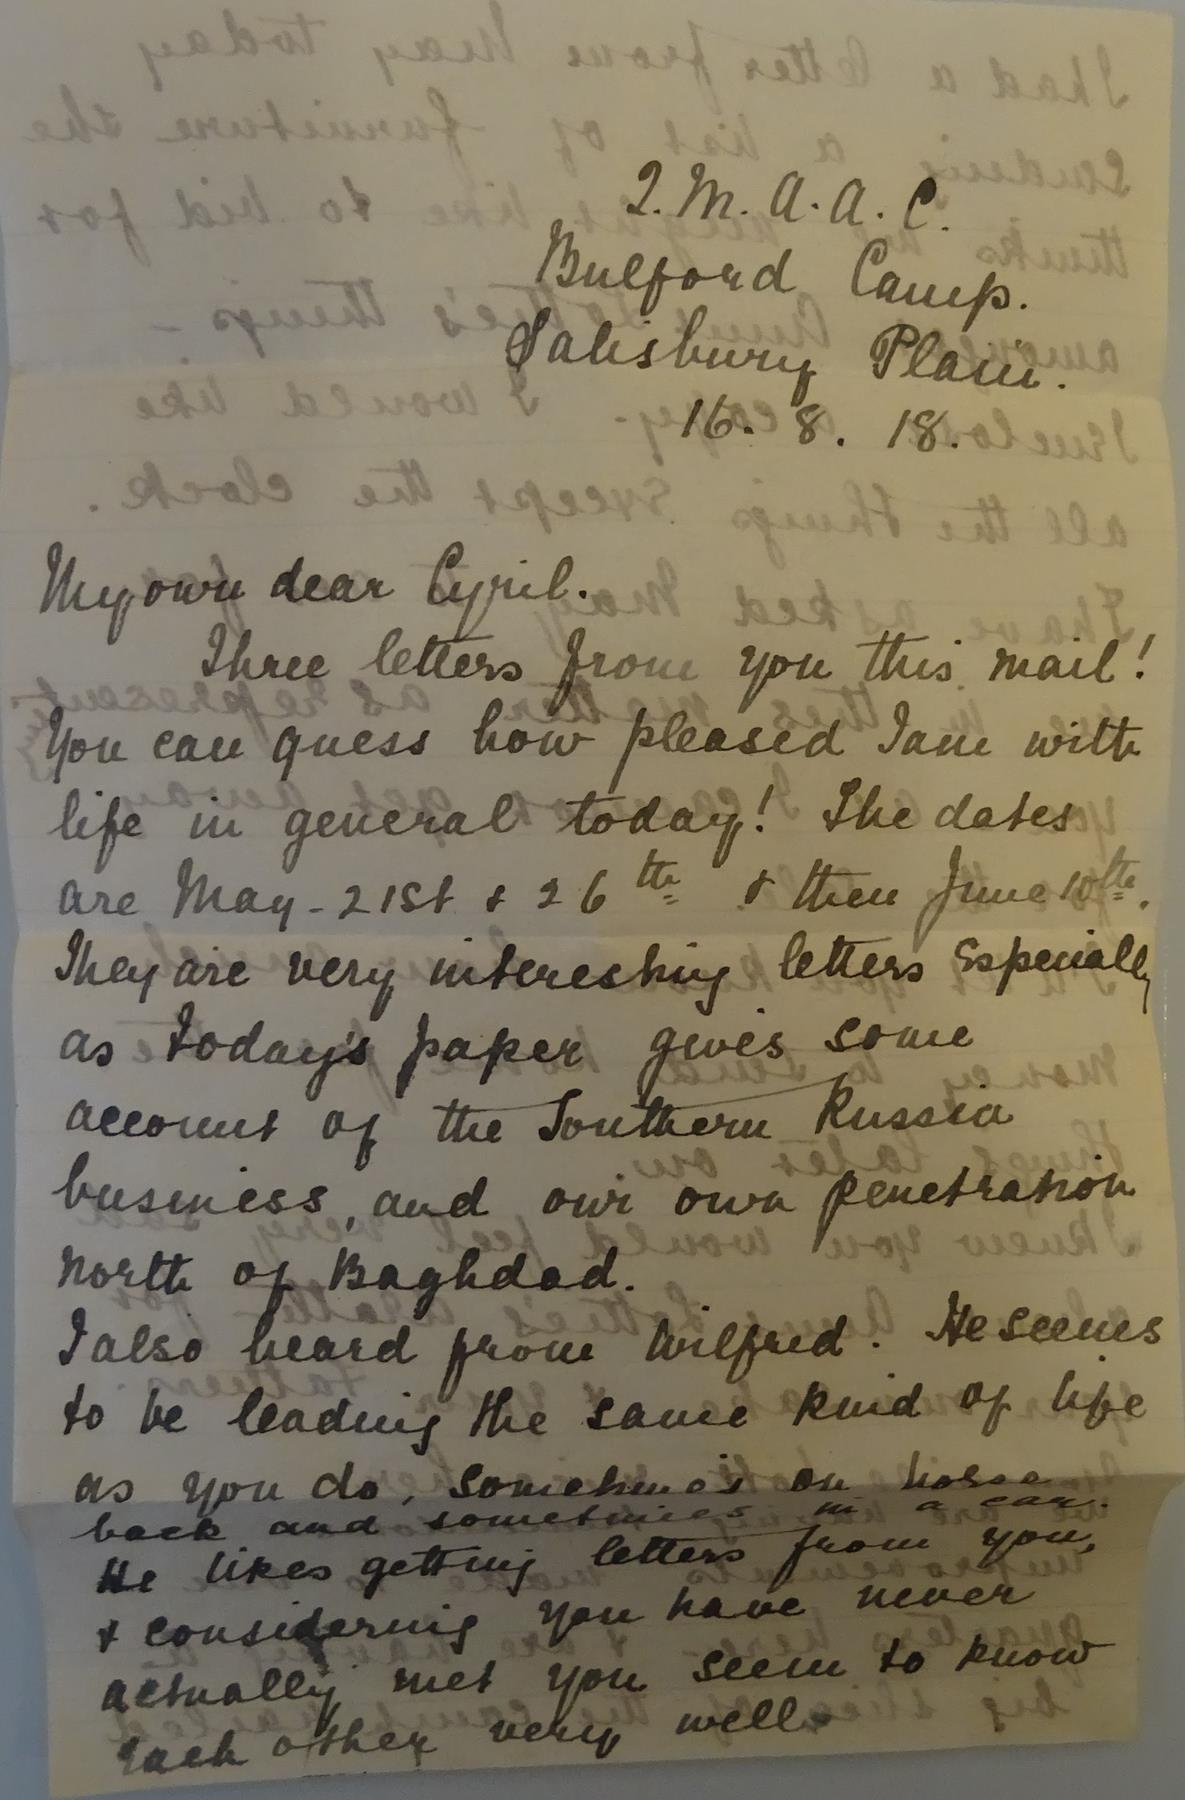 Q. M. A. A. C.
Bulford Camp.
Salisbury Plain.
16. 8. 18.
My own dear Cyril.
Three letters from you this mail!
You can guess how pleased I am with
life in general today! The dates
are May - 21st & 26th & then June 10th.
They are very interesting letters especially
as today's paper gives some
account of the Southern Russia
business, and our own penetration
north of Baghdad.
I also heard from Wilfred. He seems
to be leading the same kind of life
as you do, sometimes on horse
back and sometimes in a car.
He likes getting letters from you,
& considering you have never
actually met you seem to know
each other very well.